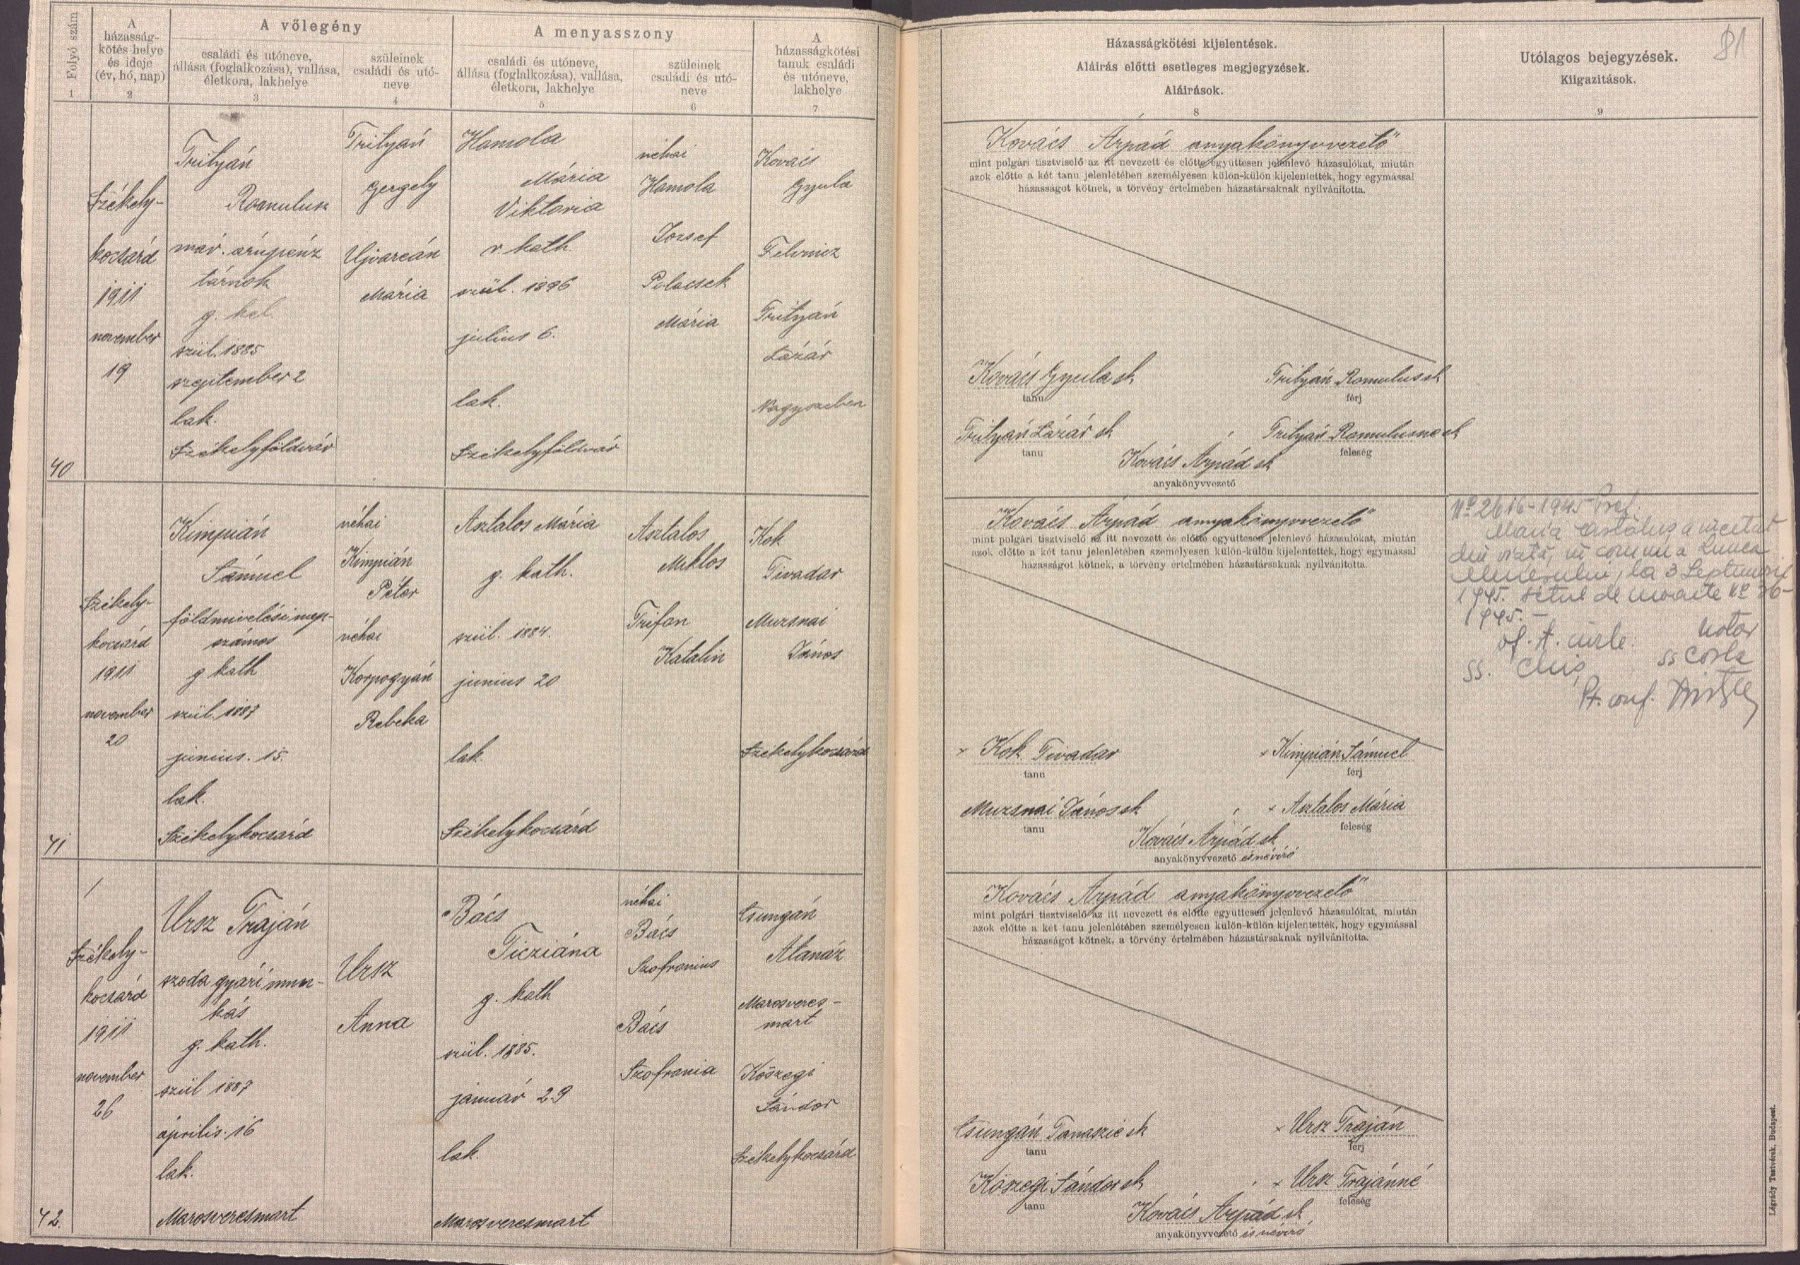 81
Folyó szám
1
A
házasság-
kötés helye
és ideje
(év, hó, nap)
2
A vőlegény
családi és utóneve,
állása (foglalkozása), vallása,
életkora, lakhelye
3
szüleinek
családi és utó-
neve
4
A menyasszony
családi és utóneve,
állása (foglalkozása), vallása,
életkora, lakhelye
5
szüleinek
családi és utó-
neve
6
A
házasságkötési
tanuk családi
és utóneve,
lakhelye
7
Házasságkötési kijelentések.
Aláirás előtti esetleges megjegyzések.
Aláirások.
8
Utólagos bejegyzések.
Kiigazitások.
9
40
Székely-
kocsárd
1911
november
19
Trityán
Romulusz
máv. árúpénz
tárnok
g. kel.
szül. 1885
szeptember 2
lak.
Székelyföldvár
Trityán
Gergely
Ujvárcán
Mária
Hamola
Mária
Viktoria
r. kath
szül. 1896
julius 6.
lak.
Székelyföldvár
néhai
Hamola
József
Polacsek
Mária
Kovács
Gyula
Felvincz
Trityán
Lázár
Nagyszeben
Kovács Árpád anyakönyvvezető
mint polgári tisztviselő az itt nevezett és előtte együttesen jelenlevő házasulókat, miután
azok előtte a két tanu jelenlétében személyesen külön-külön kijelentették, hogy egymással
házasságot kötnek, a törvény értelmében házastársaknak nyilvánitotta.
Kovács Gyula sk
tanu
Trityán Romulus sk
férj
Trityán Lázár sk
tanu
Trityán Romulusné sk
feleség
Kovács Árpád sk
anyakönyvvezető
41
Székely-
kocsárd
1911
november
20
Kimpián
Sámuel
földmivelési nap-
számos
g. kath
szül. 1887
junius. 15.
lak.
Székelykocsárd
néhai
Kimpián
Péter
néhai
Korpogyán
Rebeka
Asztalos Mária
g. kath.
szül. 1884.
junius 20
lak
Székelykocsárd
Asztalos
Miklos
Trifan
Katalin
Kok
Tivadar
Muzsnai
János
Székelykocsárd
Kovács Árpád anyakönyvvezető
mint polgári tisztviselő az itt nevezett és előtte együttesen jelenlevő házasulókat, miután
azok előtte a két tanu jelenlétében személyesen külön-külön kijelentették, hogy egymással
házasságot kötnek, a törvény értelmében házastársaknak nyilvánitotta.
× Kok Tivadar
tanu
× Kimpián Sámuel
férj
Muzsnai János sk
tanu
× Asztalos Mária
feleség
Kovács Árpád sk
anyakönyvvezető és névíró
Maria Astăluș a încetat
din viață, în comuna Lunca
Mureșului, la 3 Septemvrie
1945. Actul de moarte No 36-
1945.-
Of. st. civile. Notar
ss. ss Costa
Pt. conf.
42.
Székely-
kocsárd
1911
november
26
Ursz Traján
szoda gyári mun-
kás
g. kath.
szül 1887
április. 16
lak.
Marosveresmart
Ursz
Anna
Bács
Ticziána
g. kath
szül. 1885.
január 29
lak
Marosveresmart
néhai
Bács
Szofronius
Bács
Szofronia
Csungán
Atanáz
Marosveres-
mart
Kőszegi
Sándor
Székelykocsárd
Kovács Árpád anyakönyvvezető
mint polgári tisztviselő az itt nevezett és előtte együttesen jelenlevő házasulókat, miután
azok előtte a két tanu jelenlétében személyesen külön-külön kijelentették, hogy egymással
házasságot kötnek, a törvény értelmében házastársaknak nyilvánitotta.
Csungán Tanaszie sk
tanu
× Ursz Traján
férj
Kőszegi Sándor sk
tanu
× Ursz Trajánné
feleség
Kovács Árpád sk
anyakönyvvezető és névíró
Légrády Testvérek, Budapest.